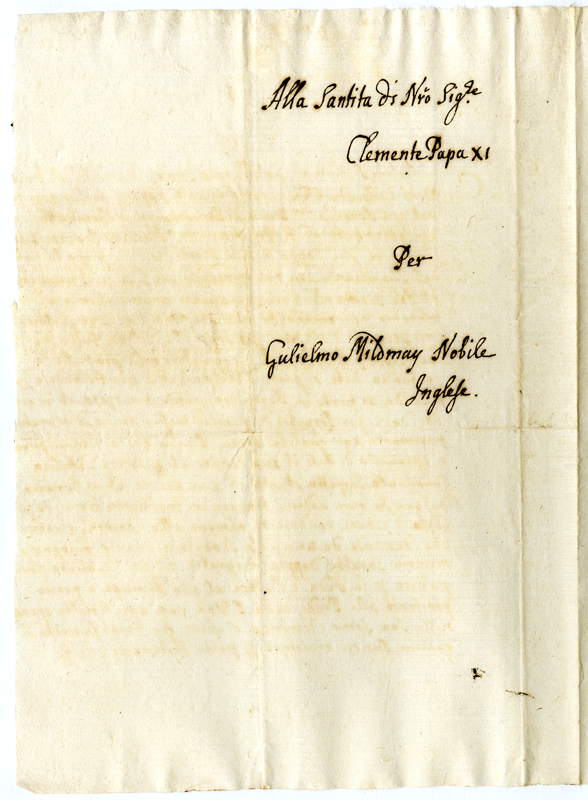 Alla Santita di Nrõ Sig.re
Clemente Papa XI
Per
Gulielmo Mildmay Nobile
Inglese.